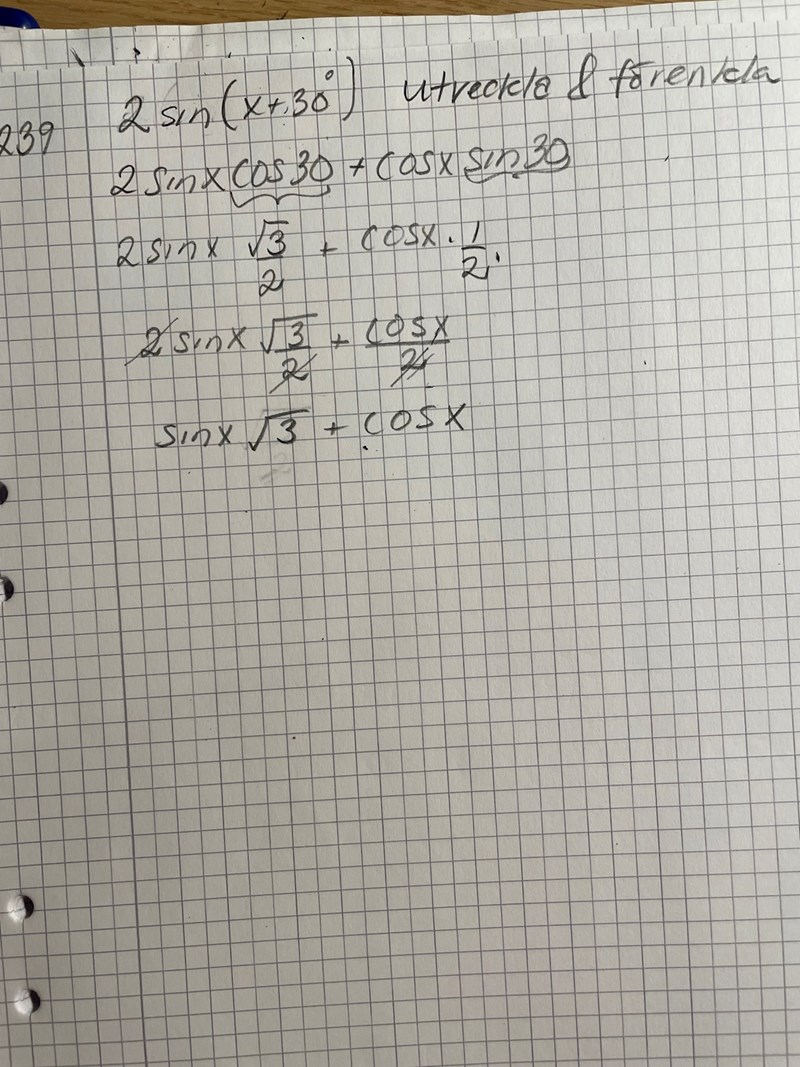 239 2 sin(x+30°) utveckla & förenkla
2 sinx cos30 + cosx sin30
2 sinx √3/2 + cosx · 1/2.
2 sinx √3/2 + cosx/2
sinx √3 + cosx